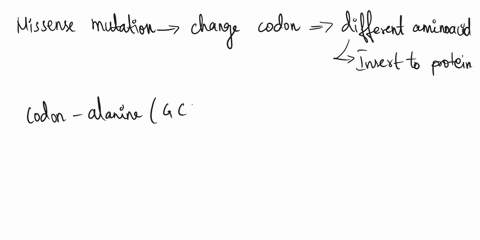 Missense mutation → change codon ⇒ different aminoacid
↳ Insert to protein
Codon - alanine ( GC